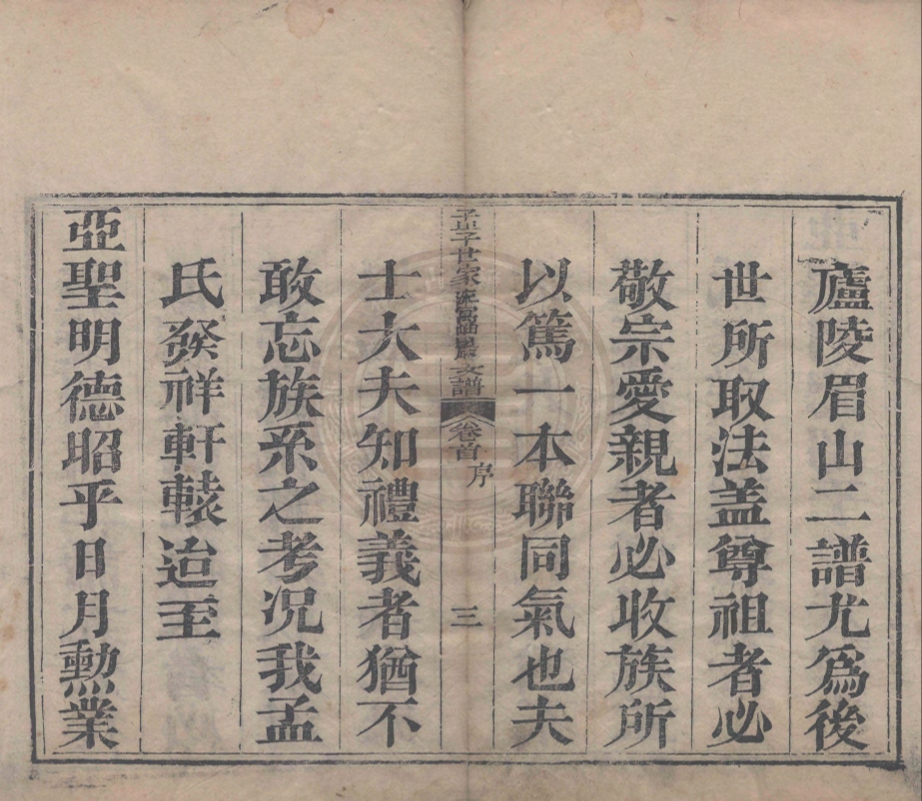 廬陵眉山二譜尤爲後
世所取法盖尊祖者必
敬宗愛親者必收族所
以篤一本聯同氣也夫
孟子世家支譜 卷首 序 三
士大夫知禮義者猶不
敢忘族系之考况我孟
氏發祥軒轅迨至
亞聖明德昭乎日月勲業